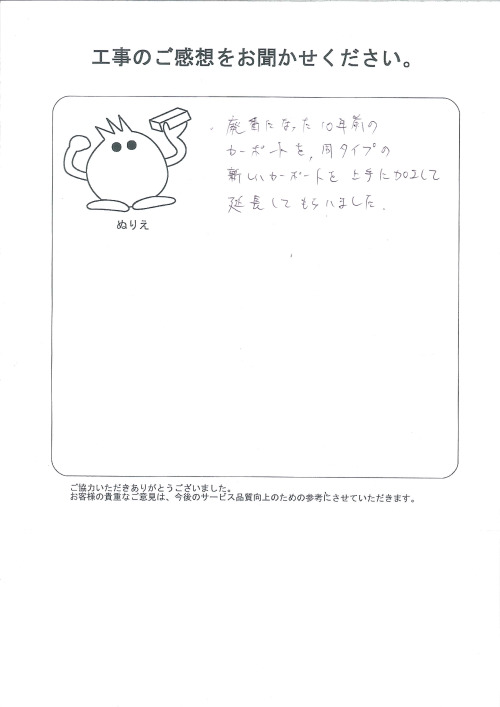 工事のご感想をお聞かせください。
・廃番になった10年前の
カーポートを、同タイプの
新しいカーポートを上手に加工して
延長してもらいました。
ぬりえ
ご協力いただきありがとうございました。
お客様の貴重なご意見は、今後のサービス品質向上のための参考にさせていただきます。